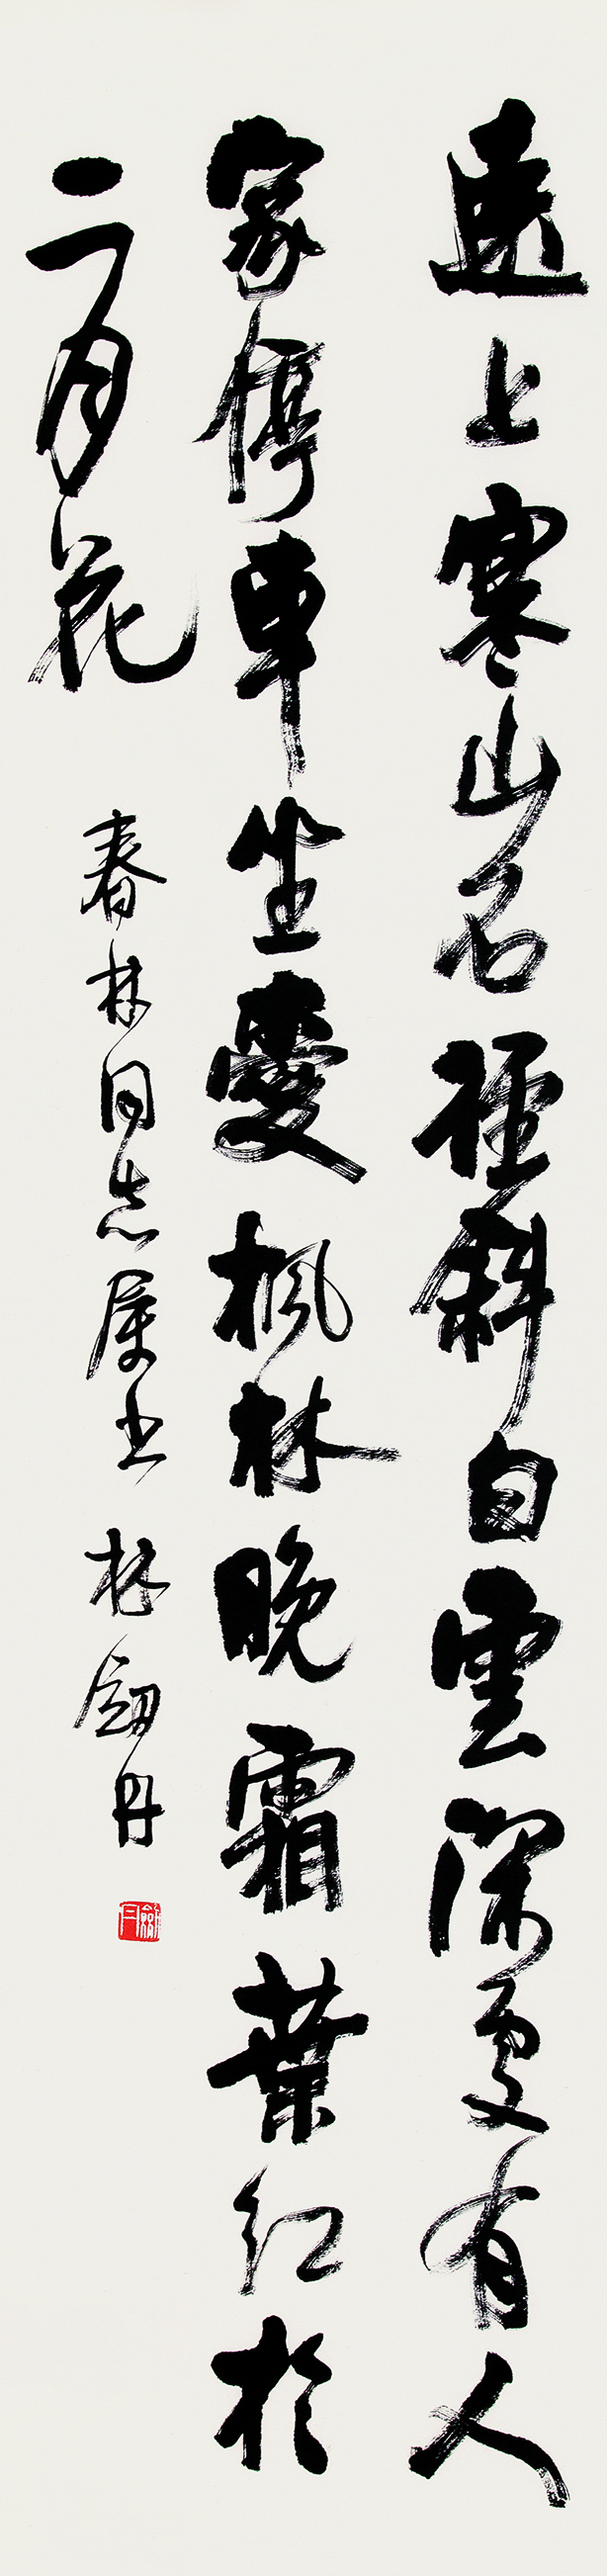 遠上寒山石徑斜白雲深處有人
家停車坐愛楓林晚霜葉紅於
二月花
春林同志属书 林劍丹
劍丹